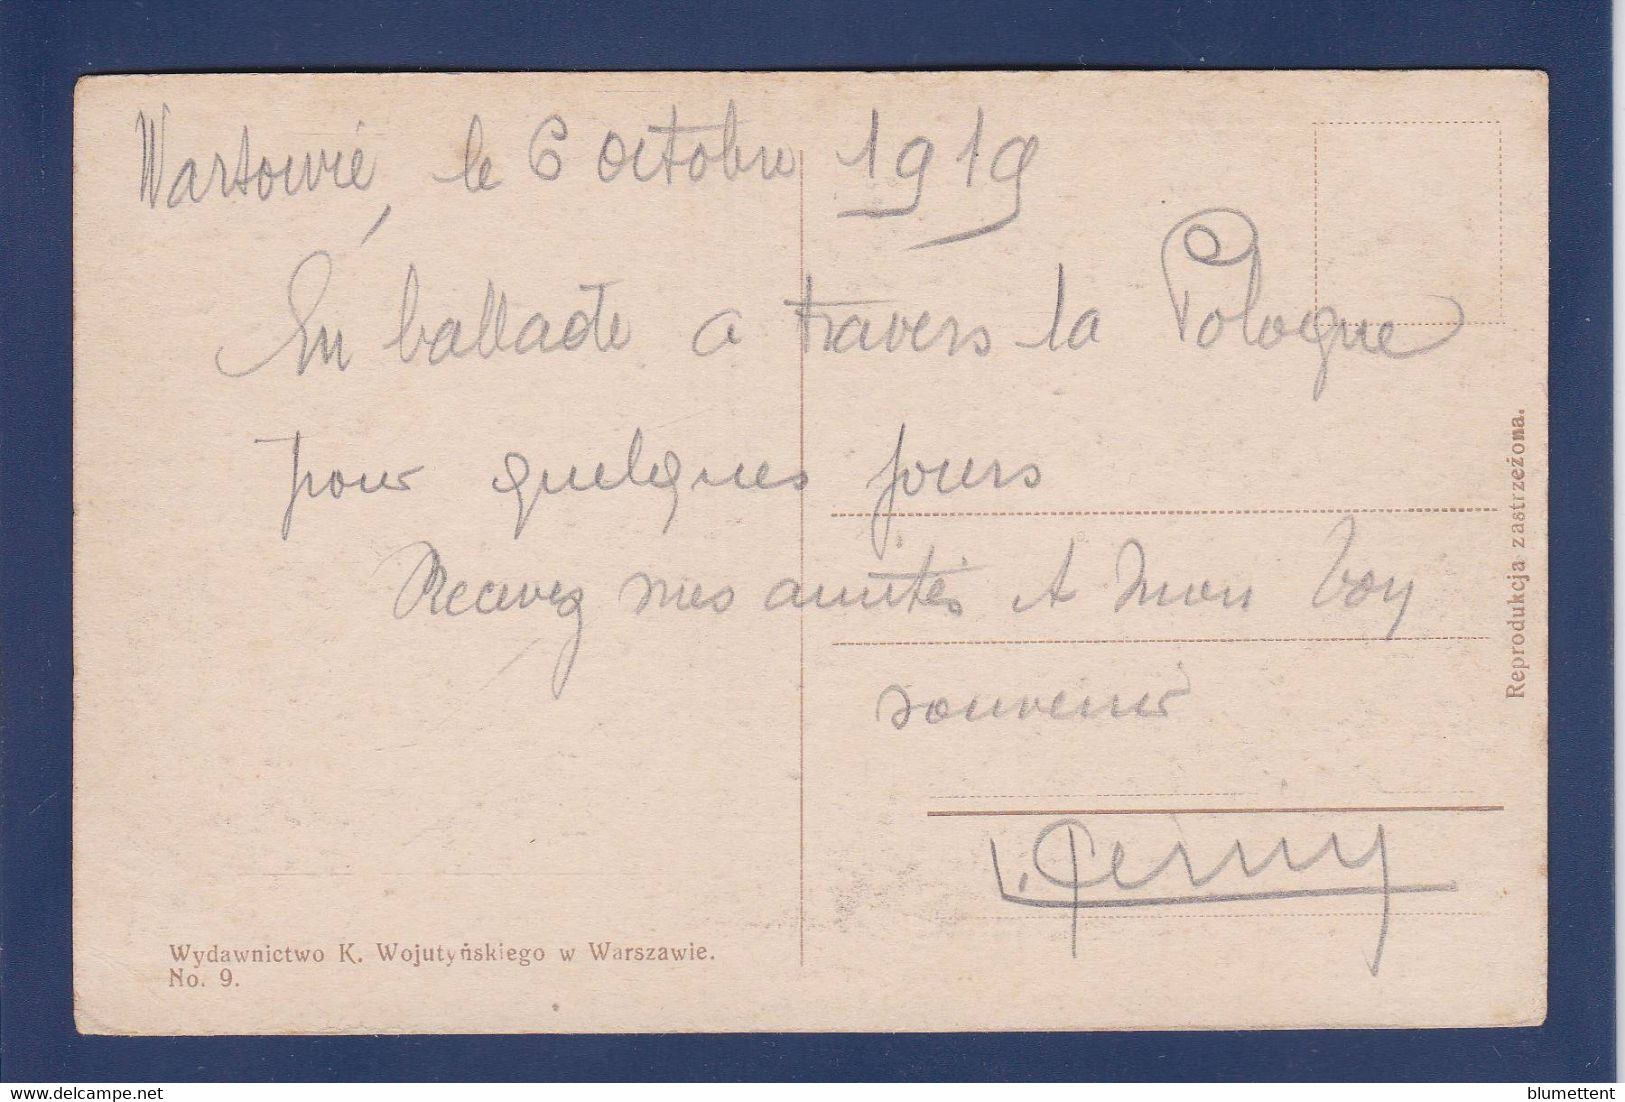 Warsovie, le 6 Octobre 1919
En ballade a travers la Pologne
pour quelques jours
Recevez mes amitiés et mon bon
souvenir
Wydawnictwo K. Wojutyńskiego w Warszawie.
No. 9.
Reprodukcja zastrzeżona.
blumettent